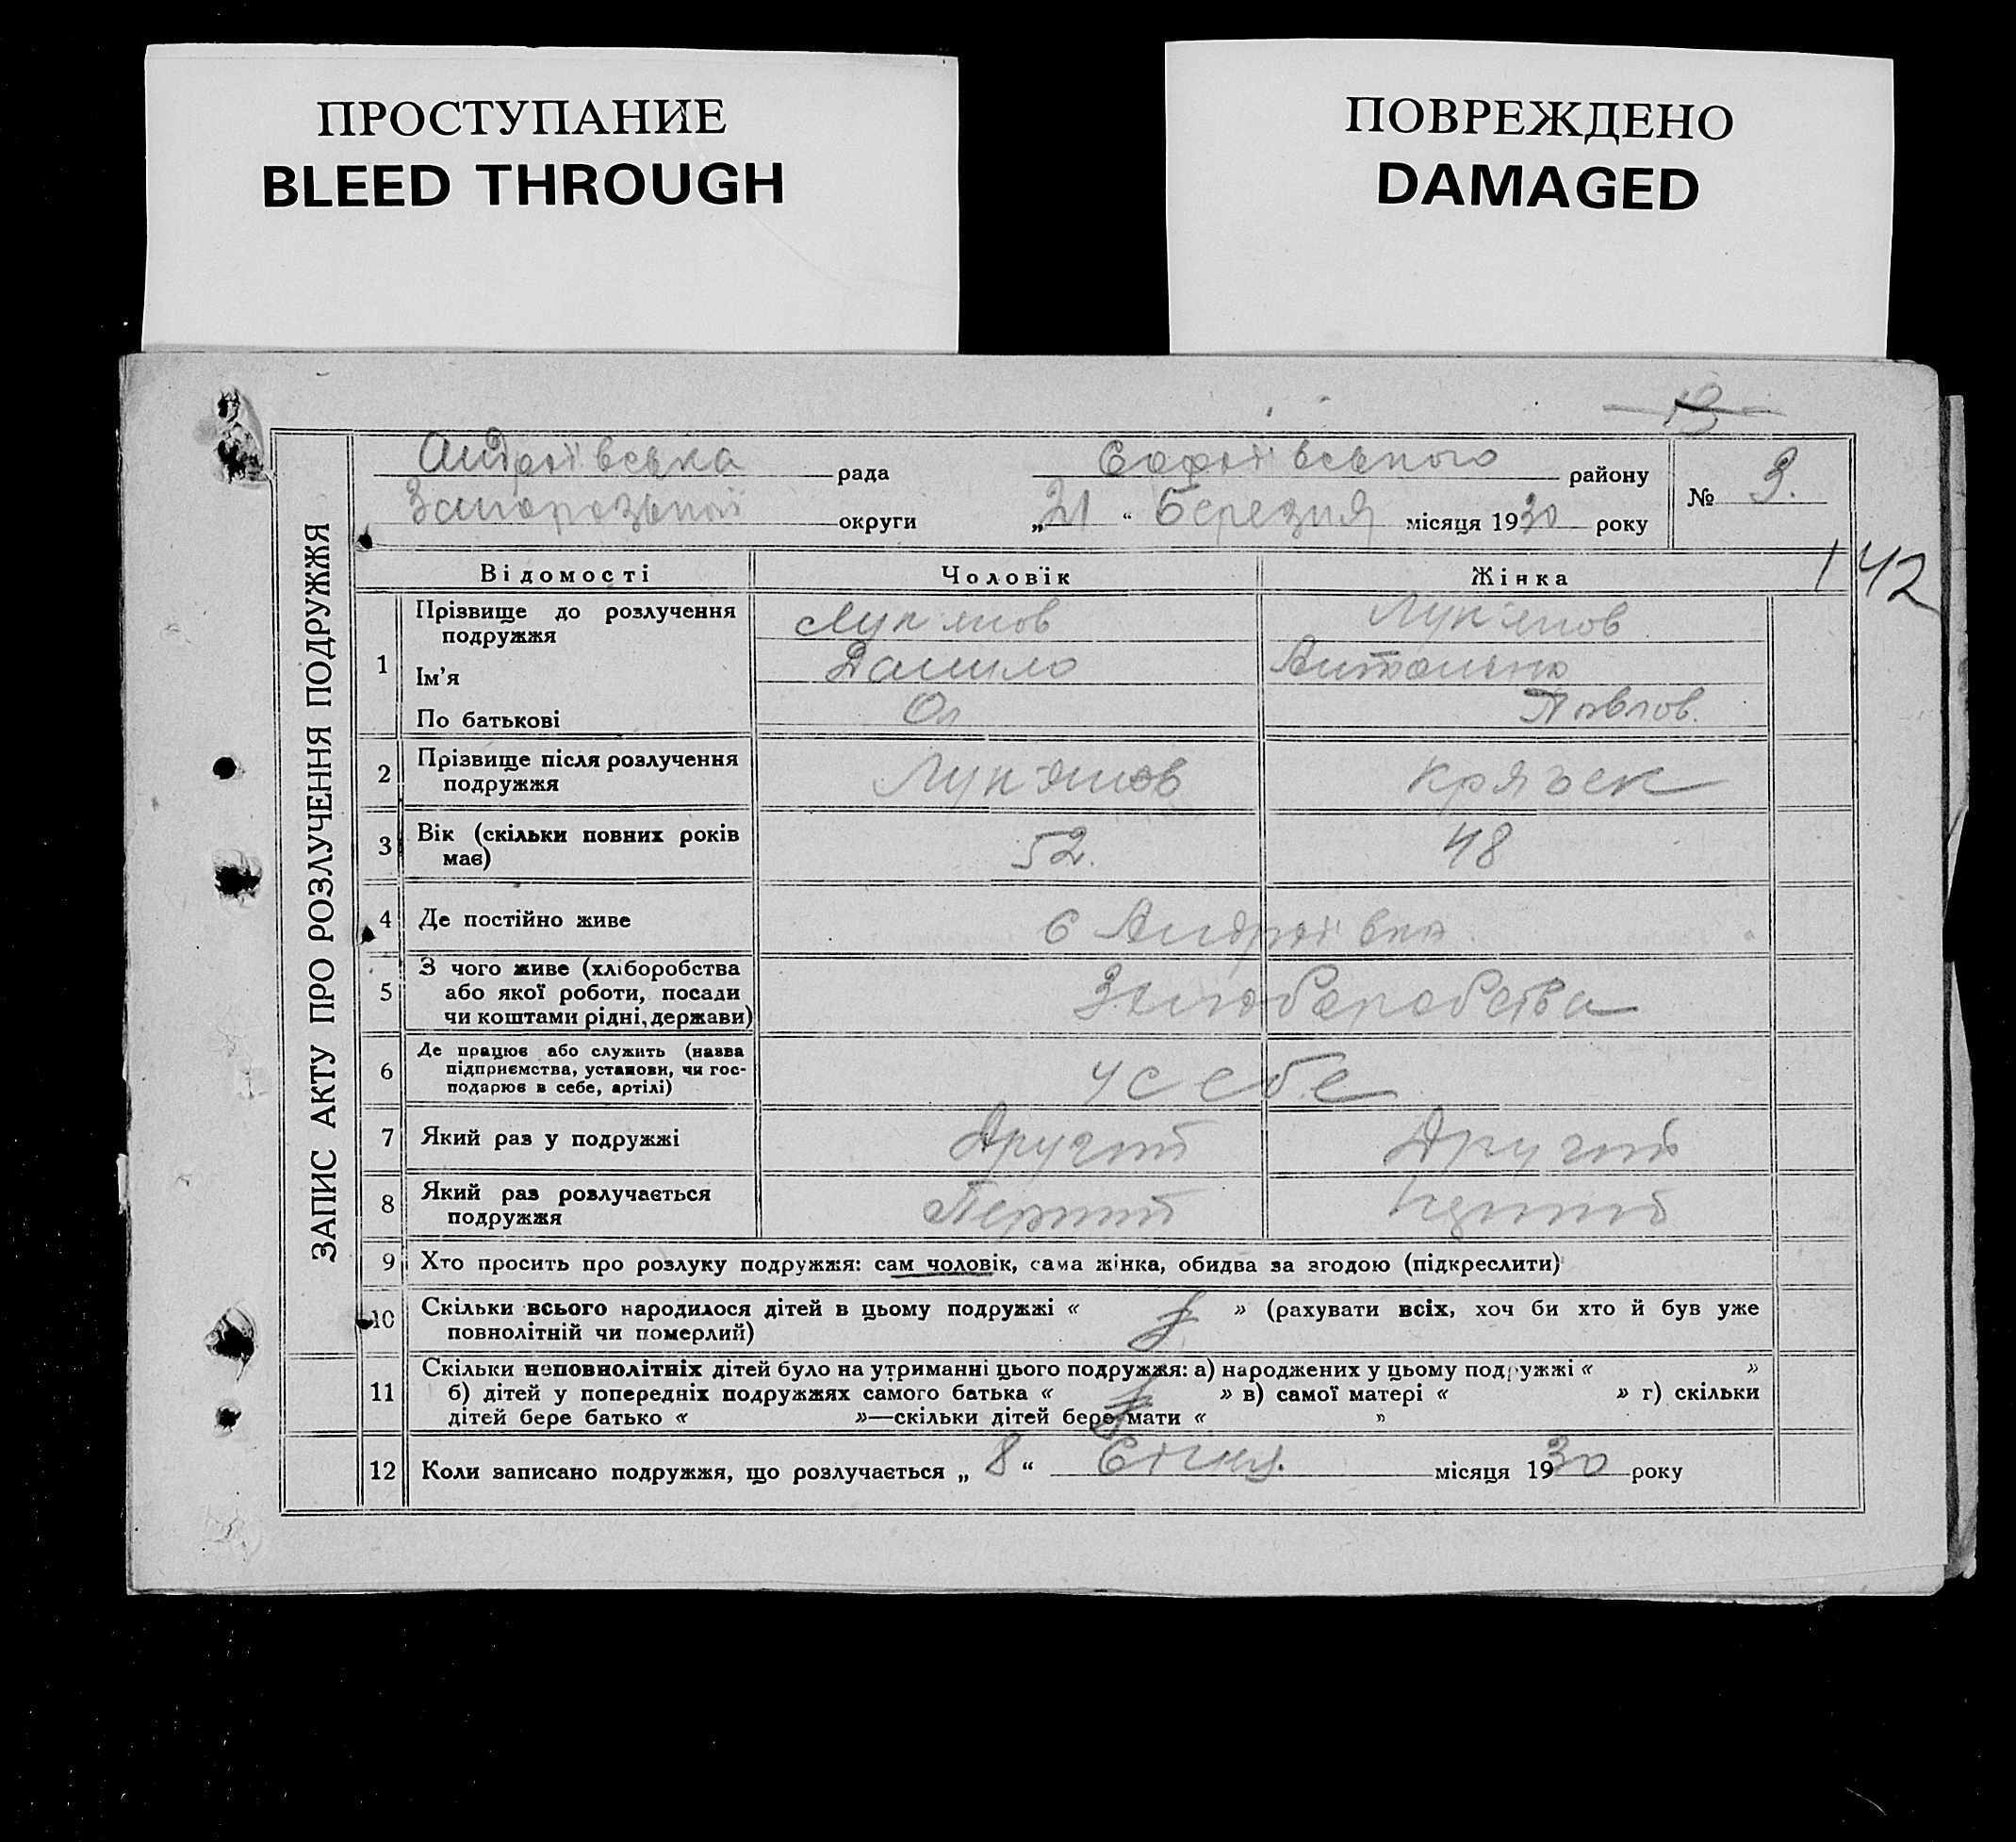 ПРОСТУПАНИЕ
BLEED THROUGH
ПОВРЕЖДЕНО
DAMAGED
13
ЗАПИС АКТУ ПРО РОЗЛУЧЕННЯ ПОДРУЖЖЯ
Андріівська рада Софіівського району № 3.
Запорозької округи „21“ Березня місяця 1930 року
142
Відомості Чоловік Жінка
1 Прізвище до розлучення подружжя Лук'янов Лук'янов
Ім'я Данило Антоніна
По батькові Ол Павлов.
2 Прізвище після розлучення
подружжя Лук'янов
3 Вік (скільки повних років
має) 52. 48
4 Де постійно живе с Андріівка
5 З чого живе (хліборобства
або якої роботи, посади
чи коштами рідні, держави)
6 Де працює або служить (назва
підприємства, установи, чи гос-
подарює в себе, артілі) у себе
7 Який раз у подружжі Другий Другий
8 Який раз розлучається
подружжя Перший
9 Хто просить про розлуку подружжя: сам чоловік, сама жінка, обидва за згодою (підкреслити)
10 Скільки всього народилося дітей в цьому подружжі « » (рахувати всіх, хоч би хто й був уже
повнолітній чи померлий)
11 Скільки неповнолітніх дітей було на утриманні цього подружжя: а) народжених у цьому подружжі « »
б) дітей у попередніх подружжях самого батька « » в) самої матері « » г) скільки
дітей бере батько « »—скільки дітей бере мати « »
12 Коли записано подружжя, що розлучається „8“ Січня. місяця 1930 року